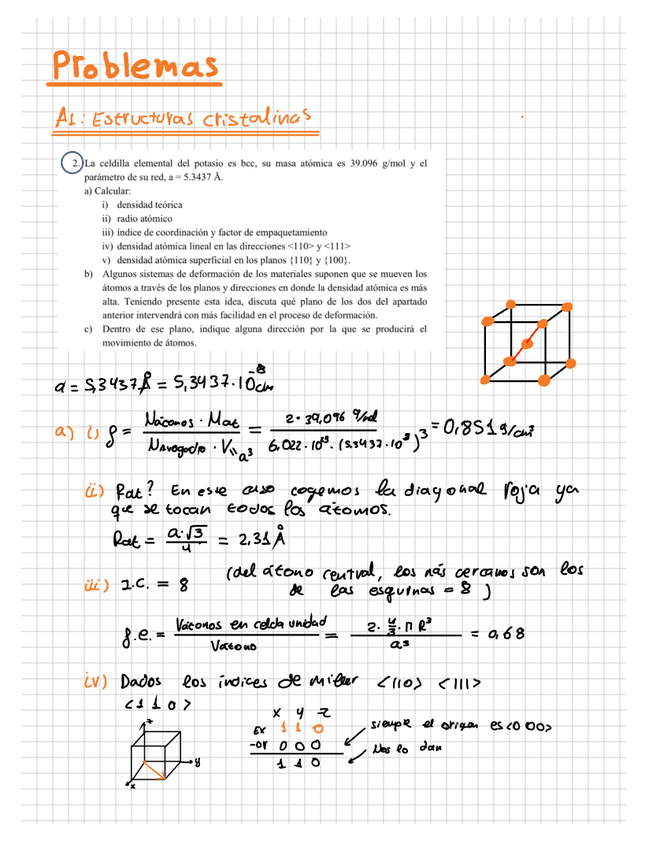 Problemas
A1: Estructuras cristalinas
2. La celdilla elemental del potasio es bcc, su masa atómica es 39.096 g/mol y el
parámetro de su red, a = 5.3437 Å.
a) Calcular:
i) densidad teórica
ii) radio atómico
iii) índice de coordinación y factor de empaquetamiento
iv) densidad atómica lineal en las direcciones <110> y <111>
v) densidad atómica superficial en los planos {110} y {100}.
b) Algunos sistemas de deformación de los materiales suponen que se mueven los
átomos a través de los planos y direcciones en donde la densidad atómica es más
alta. Teniendo presente esta idea, discuta qué plano de los dos del apartado
anterior intervendrá con más facilidad en el proceso de deformación.
c) Dentro de ese plano, indique alguna dirección por la que se producirá el
movimiento de átomos.
a = 5,3437 Å = 5,3437·10⁻⁸ cm
a) i) ρ = Nátomos · Mat / Navogadro · V = 2·39,096 g/mol / 6,022·10²³·(5,3437·10⁻⁸)³ = 0,851 g/cm³
a³
ii) Rat? En este caso cogemos la diagonal roja ya
que se tocan todos los átomos.
Rat = a·√3 / 4 = 2,31 Å
iii) I.C. = 8 (del átomo central, los más cercanos son los
de las esquinas = 8)
f.e. = Vátomos en celda unidad / Vátomo = 2·4/3·π R³ / a³ = 0,68
iv) Dados los índices de Miller <110> <111>
<110>
x y z
Ex 1 1 0
siempre el origen es <000>
-or 0 0 0
Nos lo dan
1 1 0
z
y
x